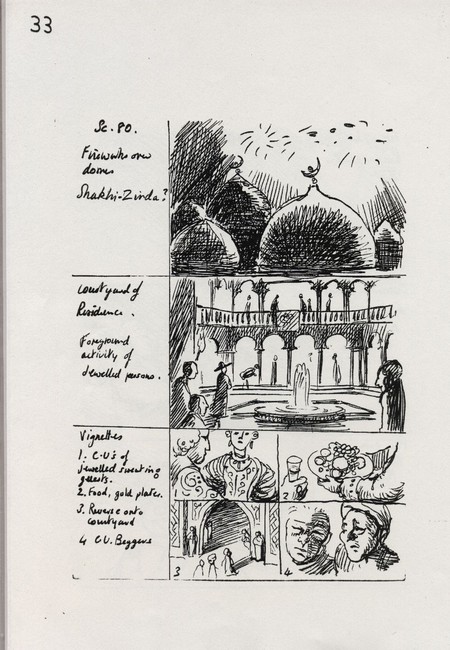 33
Sc. 80.
Fireworks over
domes
Shakhi-Zinda?
Courtyard of
Residence.
Foreground
activity of
jewelled persons.
Vignettes
1. C.U's of
jewelled sweating
guests.
2. Food, gold plates.
3. Reverse onto
courtyard
4 C.U. Beggars
2
3
4